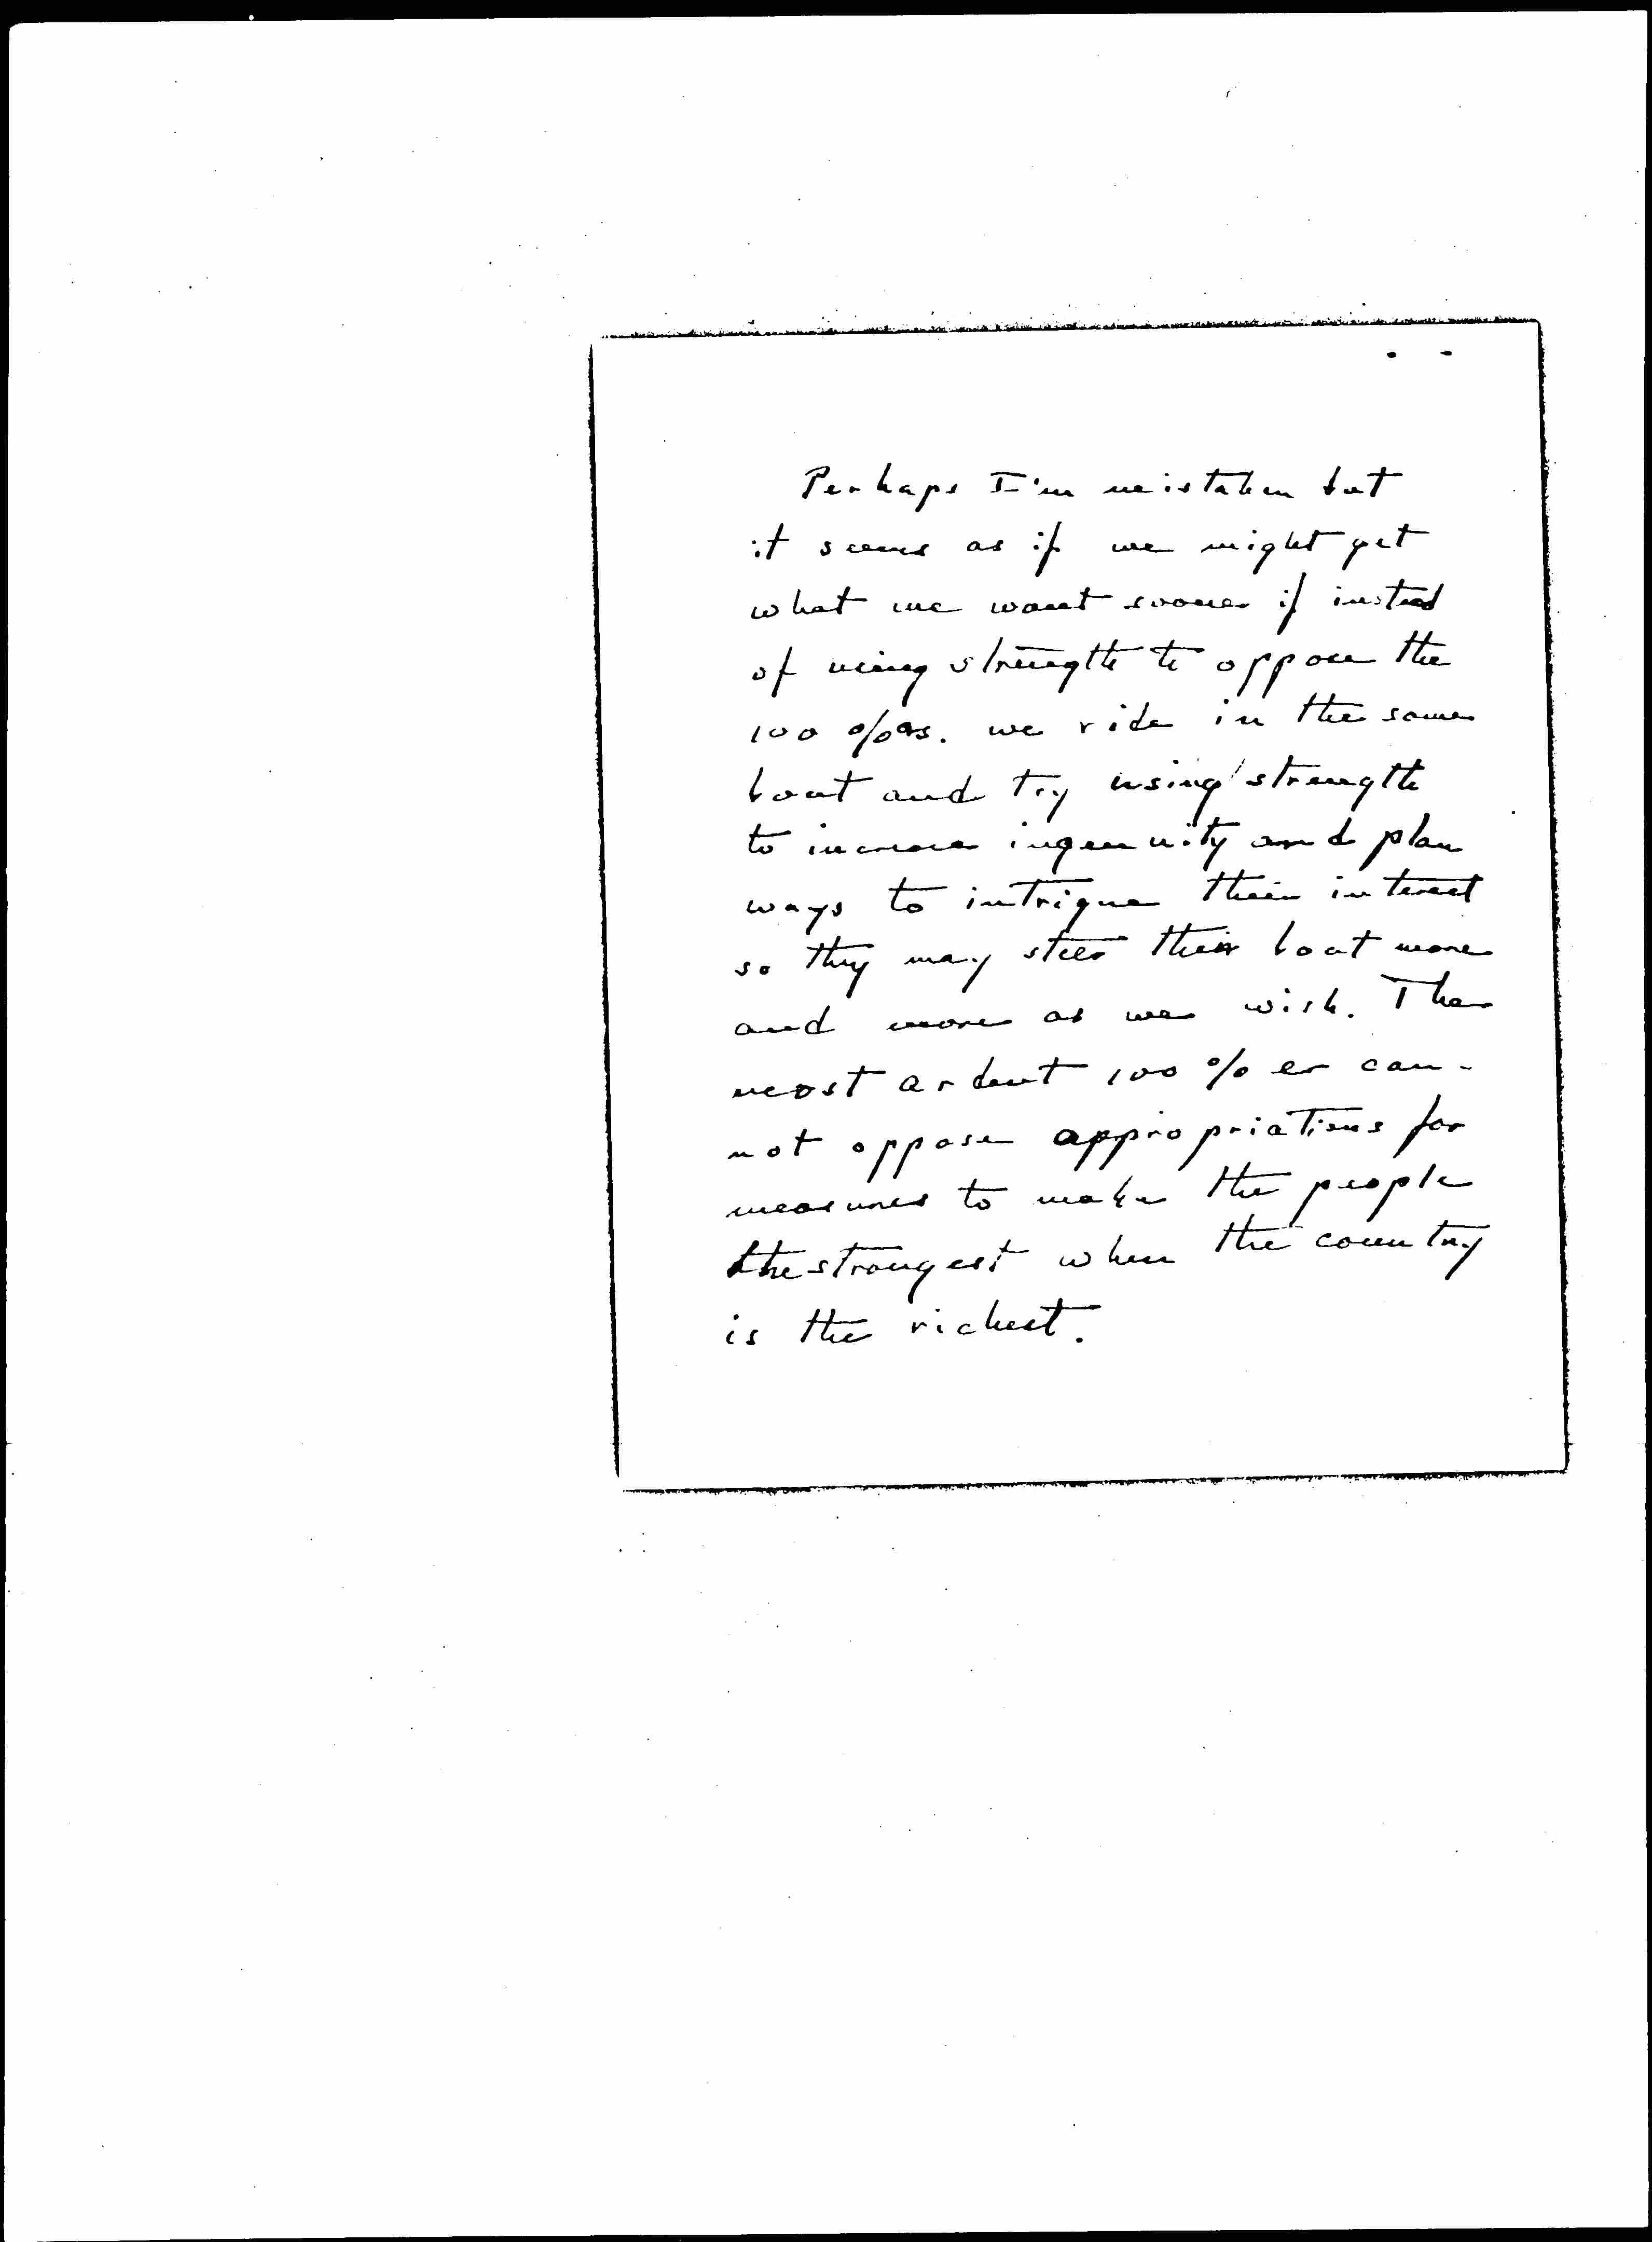 Perhaps I'm mistaken but
it seems as if we might get
what we want sooner if instead
of using strength to oppose the
100 %ers. we ride in the same
boat and try using strength
to increase ingenuity and plan
ways to intrigue their interest
so they may steer their boat more
and more as we wish. The
most ardent 100 % er can-
not oppose appropriations for
measures to make the people
the strongest when the country
is the richest.